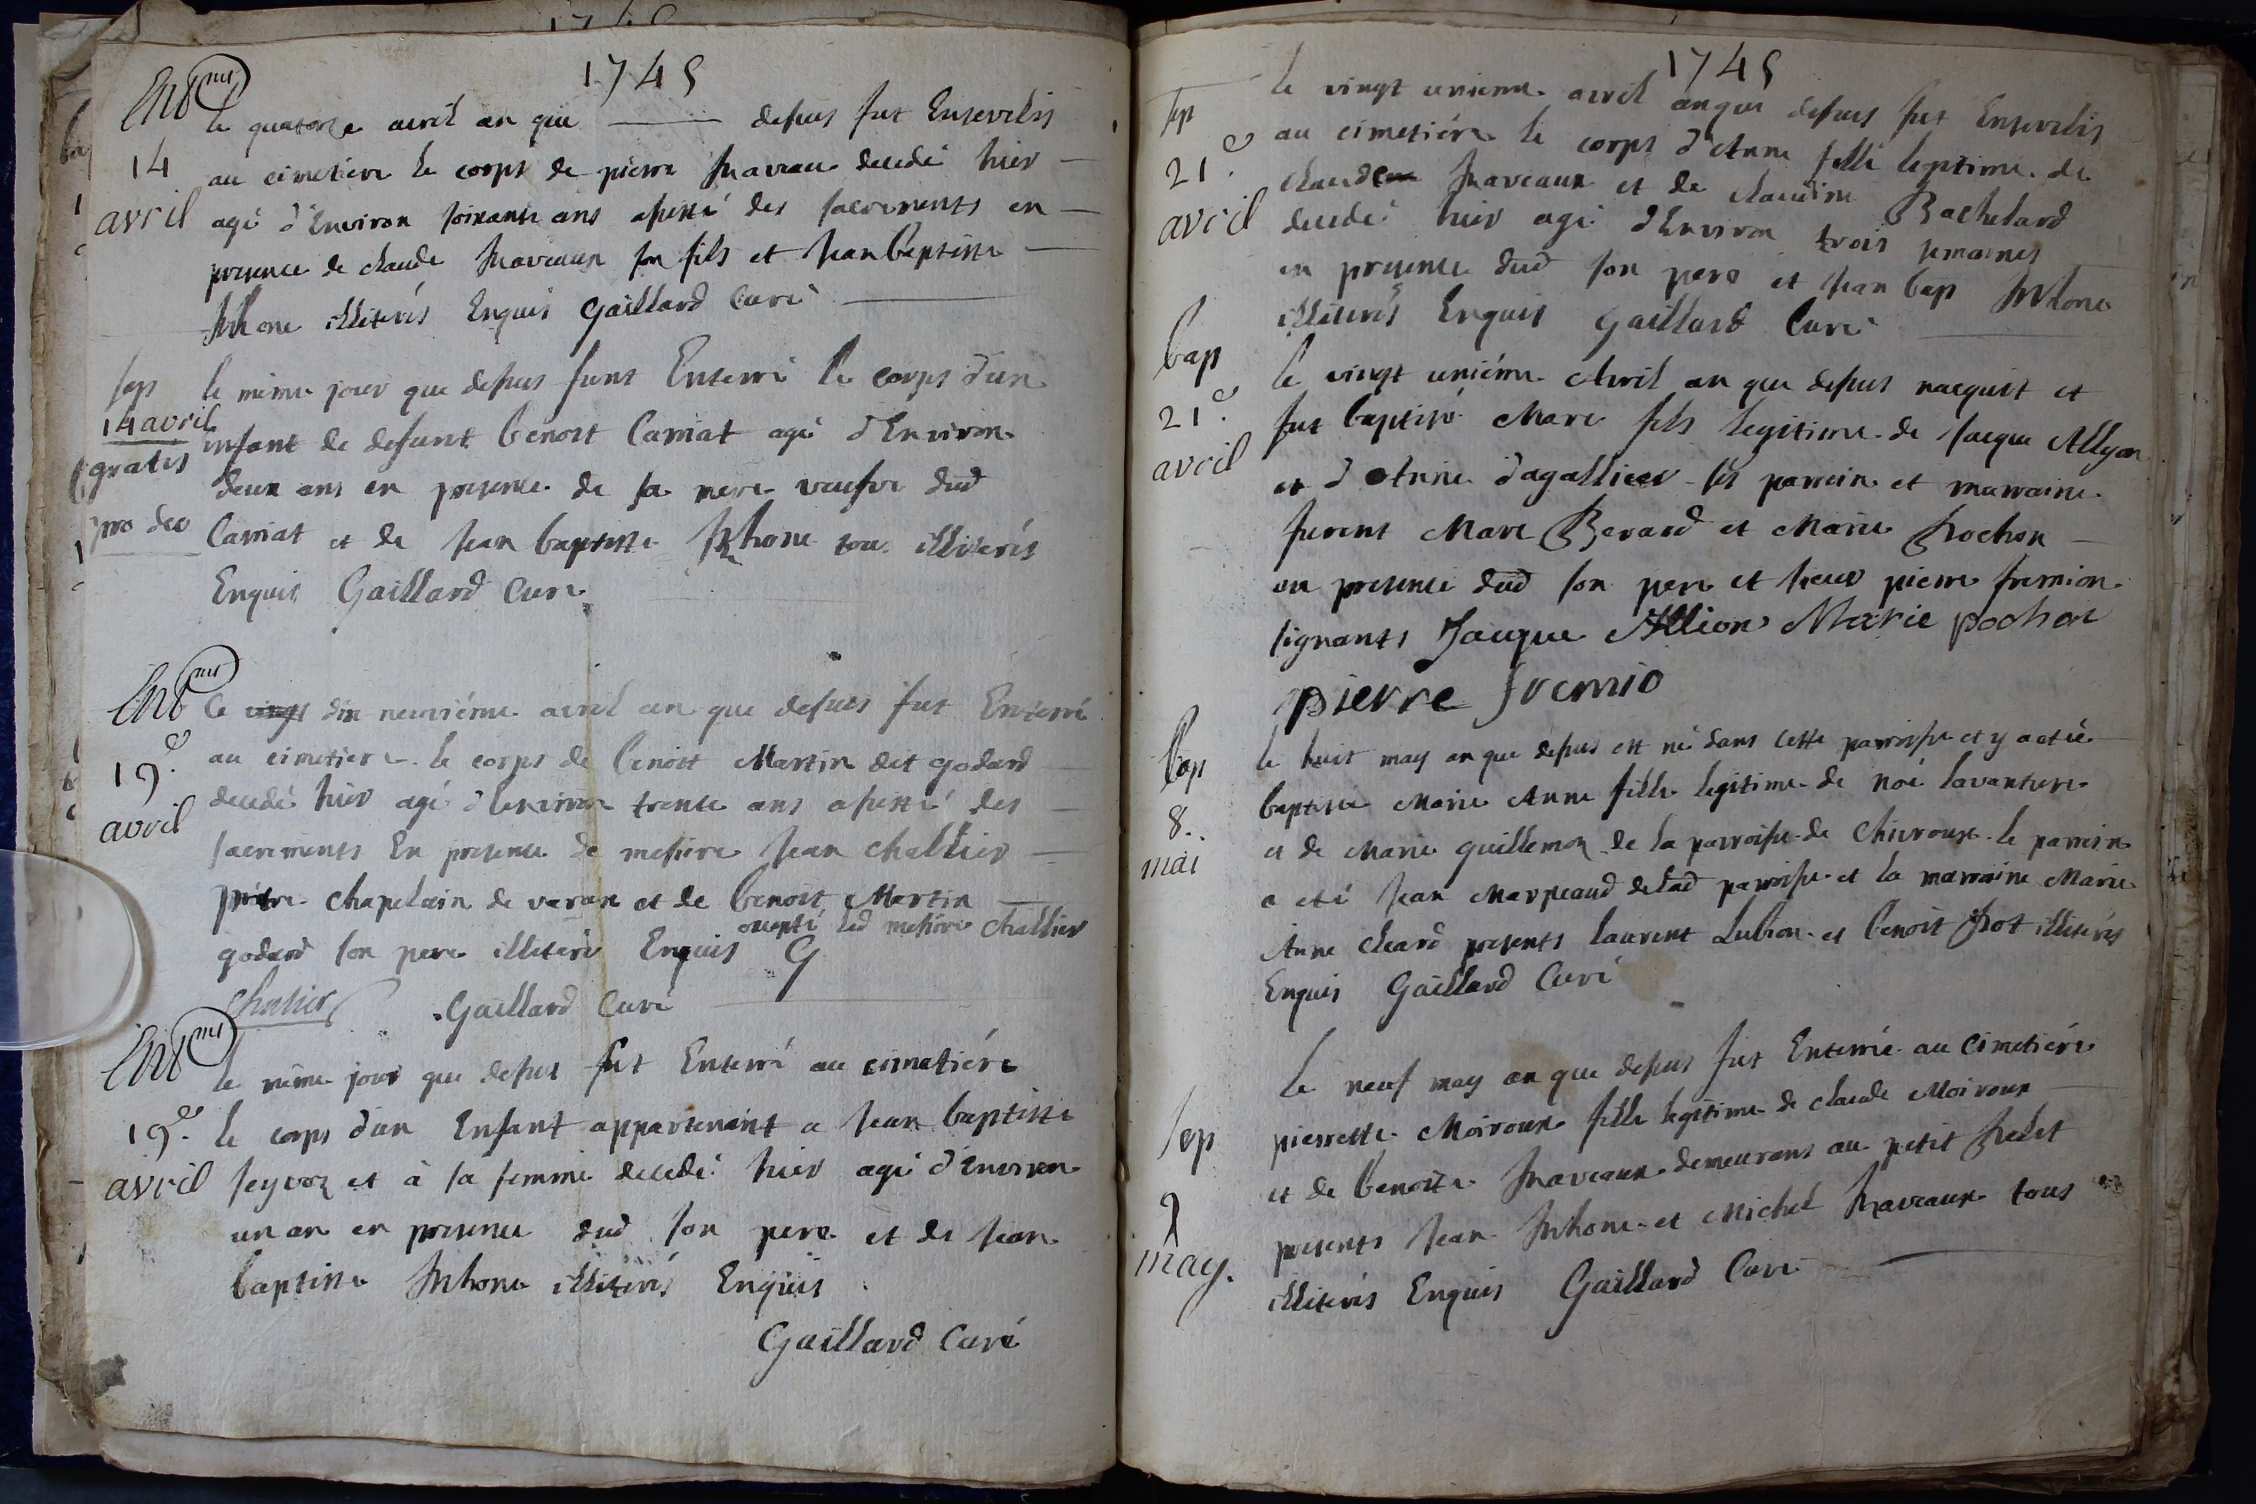 1745
Ent
14
avril
le quatorze avril an que depuis fut Ensevelis
au cimetiere le corps de pierre decedé hier
agé d'Environ soixante ans assisté des sacrements en
presence de claude son fils et Jean baptiste
illiterés Enquis Gaillard Curé
sep
14 avril
gratis
pro deo
le même jour que depuis Enterré le corps d'un
enfant de defunt benoit Carriat agé d'Environ
deux ans en presence de sa mere veufve dud
Carriat et de Jean baptiste tou illiterés
Enquis Gaillard Curé
19e
avril
le dix neuviéme avril an que depuis fut Enterré
au cimetiere le corps de benoit Martin dit godard
decedé hier agé d'environ trente ans assisté des
sacrements En presence de messire Jean challier
prêtre chapelain de et de benoit Martin
excepté led messire challier
godard son pere illiteré Enquis G
Chalier Gaillard Curé
19e
avril
le même jour que depus fut Enterré au cimetiére
le corps d'un Enfant appartenant a Jean baptiste
seyvoz et à sa femme decedé hier agé d'Environ
un an en presence dud son pere et de Jean
baptiste illiterés Enquis
Gaillard Curé
1745
sep
21e
avril
le vingt unieme avril an que depuis fut Ensevelis
au cimetiére le corps d'Anne fille legitime de
claude et de claudine Bachelard
decedé hier agé d'Environ trois semaines
en presence dud son pere et Jean bap
illiterés Enquis Gaillard Curé
bap
21e
avril
le vingt uniéme Avril an que depuis naequit et
fut baptisé Marc fils legitime de Jacque Allyon
et d'Anne dagallier ses parrein et marraine
furent Marc Berard et Marie Pochon
en presence dud son pere et sieur pierre fremion
signants Jacque Allion Marie pochon
pierre fremio
bap
8.
mai
le huit may an que depus est né dans cette parroisse et y a eté
baptisée Marie Anne fille legitime de noé lavanture
et de Marie guillemoz de la parroisse de Chivroux le parrein
a eté Jean Marpeaud delad parroisse et la marraine Marie
Anne cheard presents laurent Lubion et benoit Pot illiterés
Enquis Gaillard Curé
sep
9
may.
le neuf may an que depus fut Enterrée au Cimetiére
pierrette Moiroux fille legitime de claude Moiroux
et de benoite demeurans au petit
presents Jean et Michel tous
illiterés Enquis Gaillard Curé